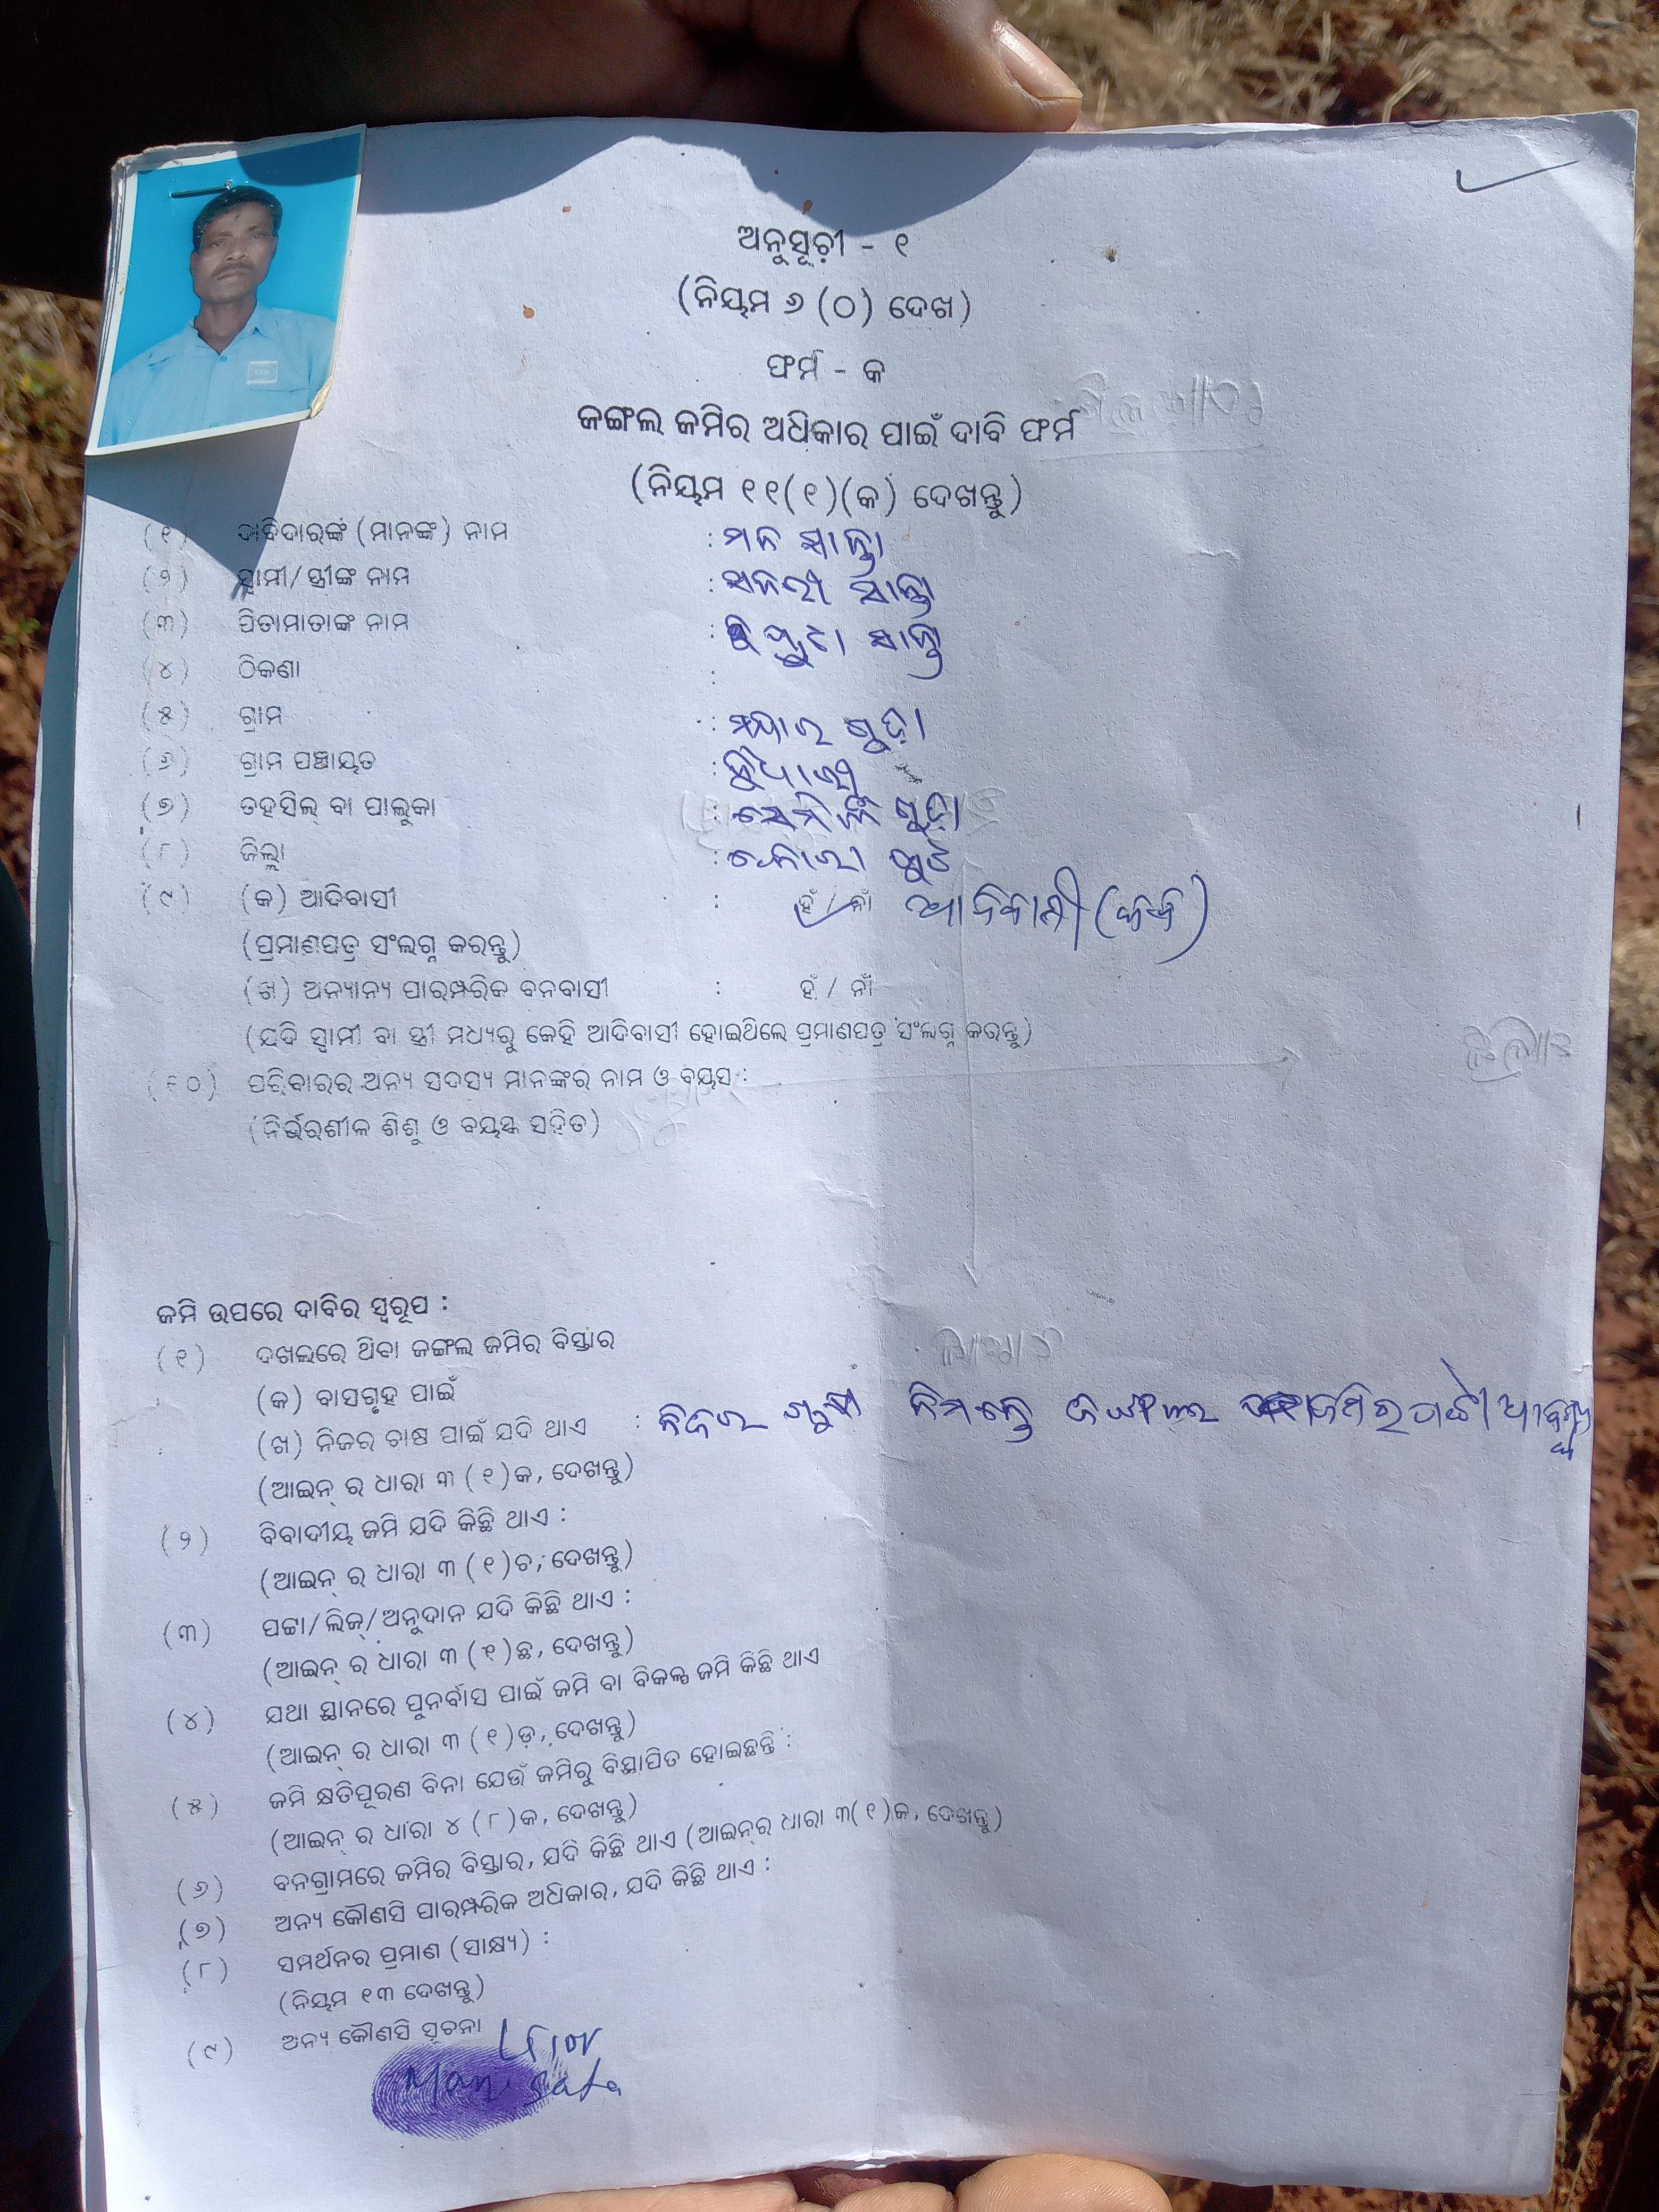 ଅନୁସୂଚୀ - ୧
(ନିୟମ ୬ (୦) ଦେଖ)
ଫର୍ମ - କ
ଜଙ୍ଗଲ ଜମିର ଅଧିକାର ପାଇଁ ଦାବି ଫର୍ମ
(ନିୟମ ୧୧(୧)(କ) ଦେଖନ୍ତୁ)
(୧) ଦାବିଦାରଙ୍କ (ମାନଙ୍କ) ନାମ : ମନ ସାନ୍ତା
(୨) ସ୍ୱାମୀ/ସ୍ତ୍ରୀଙ୍କ ନାମ : ସାନ୍ତା
(୩) ପିତାମାତାଙ୍କ ନାମ : ସାନ୍ତା
(୪) ଠିକଣା :
(୫) ଗ୍ରାମ : ଗୁଡ଼ା
(୬) ଗ୍ରାମ ପଞ୍ଚାୟତ :
(୭) ତହସିଲ୍ ବା ତାଲୁକା : ସେମିଳିଗୁଡ଼ା
(୮) ଜିଲ୍ଲା : କୋରାପୁଟ
(୯) (କ) ଆଦିବାସୀ : ହଁ / ନାଁ ଆଦିବାସୀ
(ପ୍ରମାଣପତ୍ର ସଂଲଗ୍ନ କରନ୍ତୁ)
(ଖ) ଅନ୍ୟାନ୍ୟ ପାରମ୍ପରିକ ବନବାସୀ : ହଁ / ନାଁ
(ଯଦି ସ୍ୱାମୀ ବା ସ୍ତ୍ରୀ ମଧ୍ୟରୁ କେହି ଆଦିବାସୀ ହୋଇଥିଲେ ପ୍ରମାଣପତ୍ର ସଂଲଗ୍ନ କରନ୍ତୁ)
(୧୦) ପରିବାରର ଅନ୍ୟ ସଦସ୍ୟ ମାନଙ୍କର ନାମ ଓ ବୟସ :
(ନିର୍ଭରଶୀଳ ଶିଶୁ ଓ ବୟସ୍କ ସହିତ)
ଜମି ଉପରେ ଦାବିର ସ୍ୱରୂପ :
(୧) ଦଖଲରେ ଥିବା ଜଙ୍ଗଲ ଜମିର ବିସ୍ତାର
(କ) ବାସଗୃହ ପାଇଁ
(ଖ) ନିଜର ଚାଷ ପାଇଁ ଯଦି ଥାଏ : ନିଜର ନିମନ୍ତେ ଜଙ୍ଗଲ ଜମିର
(ଆଇନ୍ ର ଧାରା ୩ (୧)କ, ଦେଖନ୍ତୁ)
(୨) ବିବାଦୀୟ ଜମି ଯଦି କିଛି ଥାଏ :
(ଆଇନ୍ ର ଧାରା ୩ (୧)ଚ, ଦେଖନ୍ତୁ)
(୩) ପଟ୍ଟା/ଲିଜ୍/ଅନୁଦାନ ଯଦି କିଛି ଥାଏ :
(ଆଇନ୍ ର ଧାରା ୩ (୧)ଛ, ଦେଖନ୍ତୁ)
(୪) ଯଥା ସ୍ଥାନରେ ପୁନର୍ବାସ ପାଇଁ ଜମି ବା ବିକଳ୍ପ ଜମି କିଛି ଥାଏ
(ଆଇନ୍ ର ଧାରା ୩ (୧)ଡ଼, ଦେଖନ୍ତୁ)
(୫) ଜମି କ୍ଷତିପୂରଣ ବିନା ଯେଉଁ ଜମିରୁ ବିସ୍ଥାପିତ ହୋଇଛନ୍ତି :
(ଆଇନ୍ ର ଧାରା ୪ (୮)କ, ଦେଖନ୍ତୁ)
(୬) ବନଗ୍ରାମରେ ଜମିର ବିସ୍ତାର, ଯଦି କିଛି ଥାଏ (ଆଇନ୍‌ର ଧାରା ୩(୧)କ, ଦେଖନ୍ତୁ)
(୭) ଅନ୍ୟ କୌଣସି ପାରମ୍ପରିକ ଅଧିକାର, ଯଦି କିଛି ଥାଏ :
(୮) ସମର୍ଥନର ପ୍ରମାଣ (ସାକ୍ଷ୍ୟ) :
(ନିୟମ ୧୩ ଦେଖନ୍ତୁ)
(୯) ଅନ୍ୟ କୌଣସି ସୂଚନା